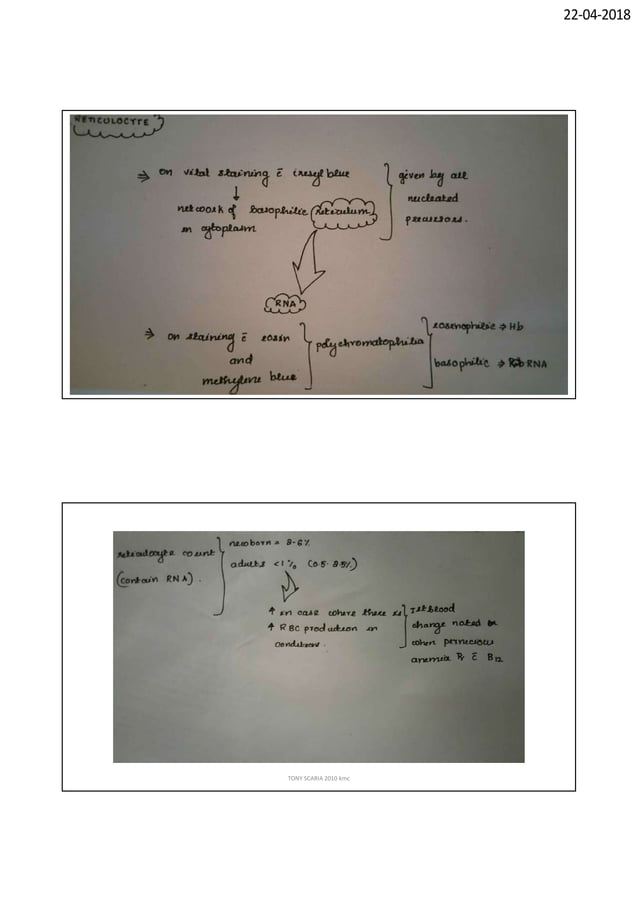 22-04-2018
RETICULOCYTE
⇒ on vital staining c̄ cresyl blue
↓
network of basophilic reticulum
in cytoplasm
given by all
nucleated
precursors.
RNA
⇒ on staining c̄ eosin
and
methylene blue
polychromatophilia
eosinophilic ⇒ Hb
basophilic ⇒ RNA
reticulocyte count
(contain RNA).
newborn = 3-6%
adults <1% (0.5-
↑ in case where there is
↑ RBC production in
condition.
blood
change noted
when pernicious
anemia Rx c̄ B12
TONY SCARIA 2010 kmc